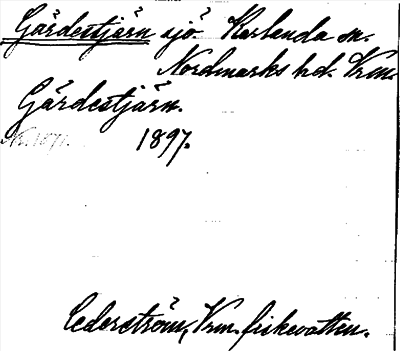 Gärdestjärn sjö Karlanda sn.
Nordmarks hd. Vrm.
Gärdestjärn.
1897.
Cederström, Vrm. fiskevatten.